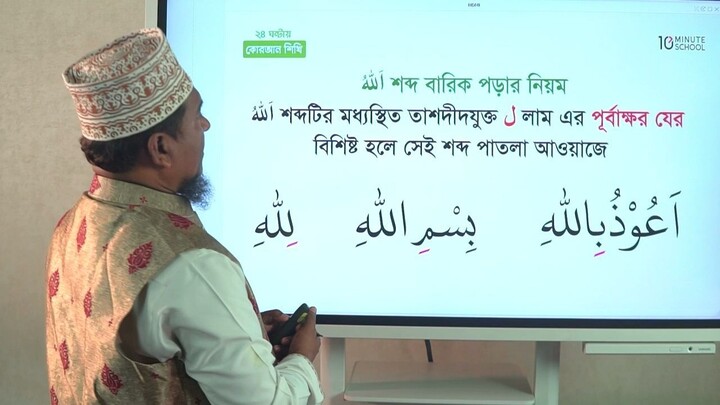 ২৪ ঘণ্টায়
কোরআন শিখি
10 MINUTE SCHOOL
اَللّٰهُ শব্দ বারিক পড়ার নিয়ম
اَللّٰهُ শব্দটির মধ্যস্থিত তাশদীদযুক্ত ل লাম এর পূর্বাক্ষর যের
বিশিষ্ট হলে সেই শব্দ পাতলা আওয়াজে
اَعُوْذُبِاللّٰهِ بِسْمِ اللّٰهِ لِلّٰهِ